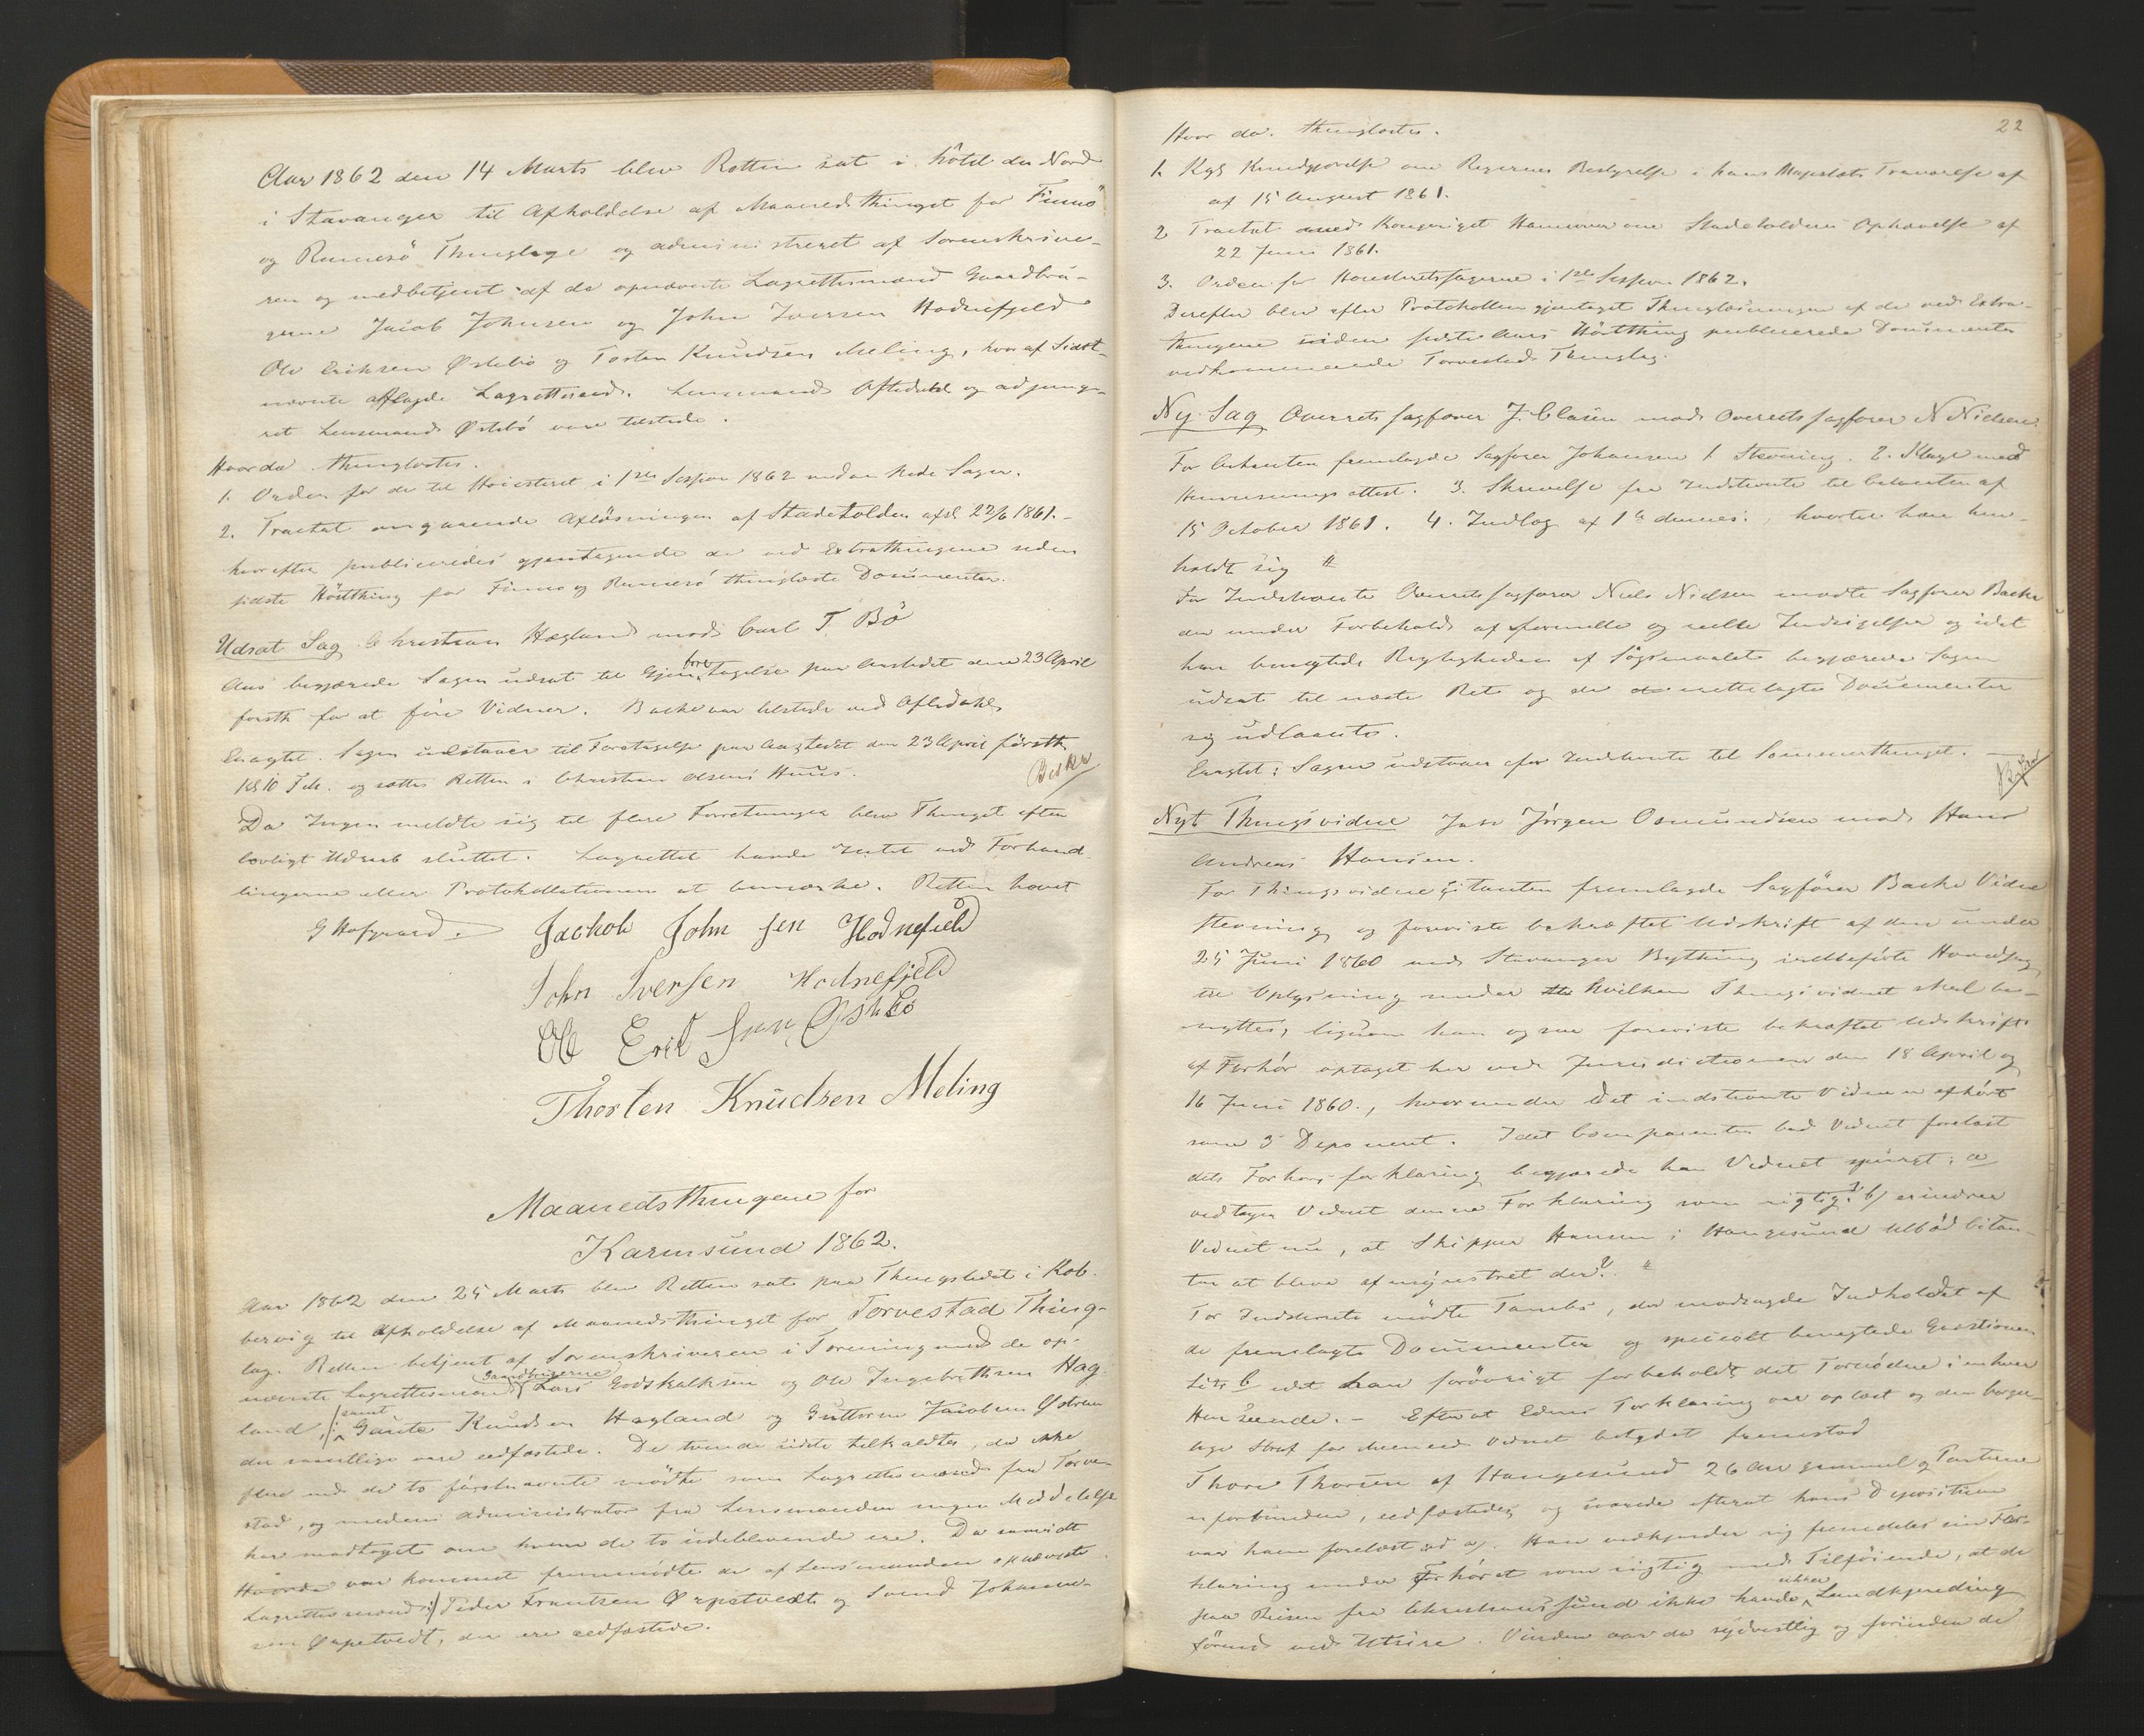 Aar 1862 den 14 Marts blev Retten sat i hôtel du Nord
i Stavanger til Afholdelse af Maanedsthinget for Finnö
og Rennesö Thinglage og administreret af Sorenskrive-
ren og medbetjent af de opnævnte Lagrettesmænd Gaardbru-
gerne Jacob Johnsen og John Iversen Hodnefjeld
Ole Eriksen Østebö og Tosten Knudsen Meling, hvoraf Sidst-
nævnte aflagde Lagretteseed. Lensmand Aftedahl og adjunge-
ret Lensmand Østebö vare tilstede.
Hvorda thinglæstes.
1. Orden for de til Höiesteret i 1ste Session 1862 indankede Sager.
2. Tractat angaaende Aflösningen af Stadetolden afsl 22/6 1861.-
hvorefter publiceredes gjentagende de ved Extrathingene siden
sidste Höstthing for Finnö og Rennesö thinglæste Documenter.
Udsat Sag Christian Hægland mod Carl T. Bö
Aas begjærede Sagen udsat til Gjenforetagelse paa Aastedet den 23 April
förstk for at före Vidner. Backe var tilstede ved Aftedahl
Eragtet. Sagen udstaaer til Foretagelse paa Aastedet den 23 April förstk
Kl 10 Fdt. og sættes Retten i Christian Olsens Huus.
Da Ingen meldte sig til flere Forretninger blev Thinget efter
lovligt Udraab sluttet. Lagrettet havde Intet ved Forhand-
lingerne eller Protokollationen at bemærke. Retten hævet
G Hofgaard. Jachob Johnsen Hodnefield
John Iversen Hodnefjeld
Ole Eriksen Østebö
Thosten Knudsen Meling
Maanedsthingene for
Karmsund 1862.
Aar 1862 den 25 Marts blev Retten sat paa Thingstedet i Kob-
bervig til Afholdelse af Maanedsthinget for Torvestad Thing-
lag. Retten betjent af Sorenskriveren i Forening med de op-
nævnte Lagrettesmænd Gaardbrugerne Lars Godskalksen og Ole Ingebrethsen Hag-
land, samt Gaute Knudsen Hagland og Guttorm Jacobsen
der samtlige vare eedfæstede. De tvende sidste tilkaldtes, da ikke
flere end de to förstnævnte mödte som Lagrettesmænd fra Torve-
stad, og medens Administrator fra Lensmanden ingen Meddelelse
har modtaget om hvem de to udeblevende ere. Da saavidt
Hvorda var kommet fremmödte de af Lensmanden opnævnte
Lagrettesmænd Peder Frantsen Ørpetvedt og Svend Johanne-
sen Ørpetvedt, der ere eedfæstede.
22
Hvor da thinglæstes.
1. Kgl Kundgjörelse om Regjerings Bestyrelse i hans Majestæts Fraværelse af
af 15 August 1861.
2 Tractat med Kongeriget Hannover om Stadetoldens Ophævelse af
22 Juni 1861.
3. Orden for Höiesteretssagerne i 1ste Session 1862.
Derefter blev efter Protokollen gjentaget Thinglæsningen af de ved Extra-
thingene siden sidste Aars Höstthing publicerede Documenter
vedkommende Torvestad Thinglag.
Ny Sag Overretssagförer J. Clasen mod Overretssagförer N Nielsen
For Citanten fremlagde Sagförer Johannsen 1. Stevning. 2. Klage med
Henviisningsattest. 3. Skrivelse fra Indstevnte til Citanten af
15 October 1861. 4. Indlæg af 1ste dennes. hvortil han hen-
holdt sig
For Indstevnte Overretssagförer Niels Nielsen mödte Sagförer Backe
der under Forbehold af formelle og reelle Indsigelser og idet
han benegtede Rigtigheden af Sögsmaalet begjærede Sagen
udsat til næste Ret og de irettelagte Documenter
sig udlaante.
Eragtet: Sagen udstaaer for Indstevnte til Sommerthinget.
Nyt Thingsvidne Jörgen Osmundsen mod Hans
Andreas Hansen.
For Thingsvidnecitanten fremlagde Sagförer Backe Vidne
stevning og foreviste bekræftet Udskrift af den under
25 Juni 1860 ved Stavanger Bything indbeförte Hovedsag
til Oplysning under hvilken Thingsvidnet skal be-
nyttes, ligesom han ogsaa foreviste bekræftet Udskrift
af Forhör optaget her ved Jurisdictionen den 18 April og
16 Juni 1860., hvorunder det indstevnte Vidne er afhört
som 3 Deponent. Idet Comparenten bad Vidnet forelæst
dets Forhörsforklaring begjærede han Vidnet spurgt: a
vedtager Vidnet denne Forklaring som rigtig? b/ erindrer
Vidnet nu, at Skipper Hansen i Haugesund tilböd Citan-
ten at blive afmönstret der?
For Indstevnte mödte Tambs, der modsagde Indholdet af
de fremlagte Documenter og specielt benegtede Qvæstionen
Litr b idet han forövrigt forbeholdt det Fornödne i enhver
Henseende. - Efterat Edens Forklaring var oplæst og den borger-
lige Straf for Meeneed Vidnet betydet fremstod
Thore Thorsen af Haugesund 26 Aar gammel og Parterne
uforbunden, eedfæstedes og svarede efterat hans Deposition
var ham forelæst ad a). Han vedkjender sig fremdeles sin For-
klaring under Forhöret som rigtig med Tilföiende, at de
paa Reisen fra Christianssund ikke havde nogen Landkjending
förend ved Utsire. Vinden var da sydvestlig og forinden de